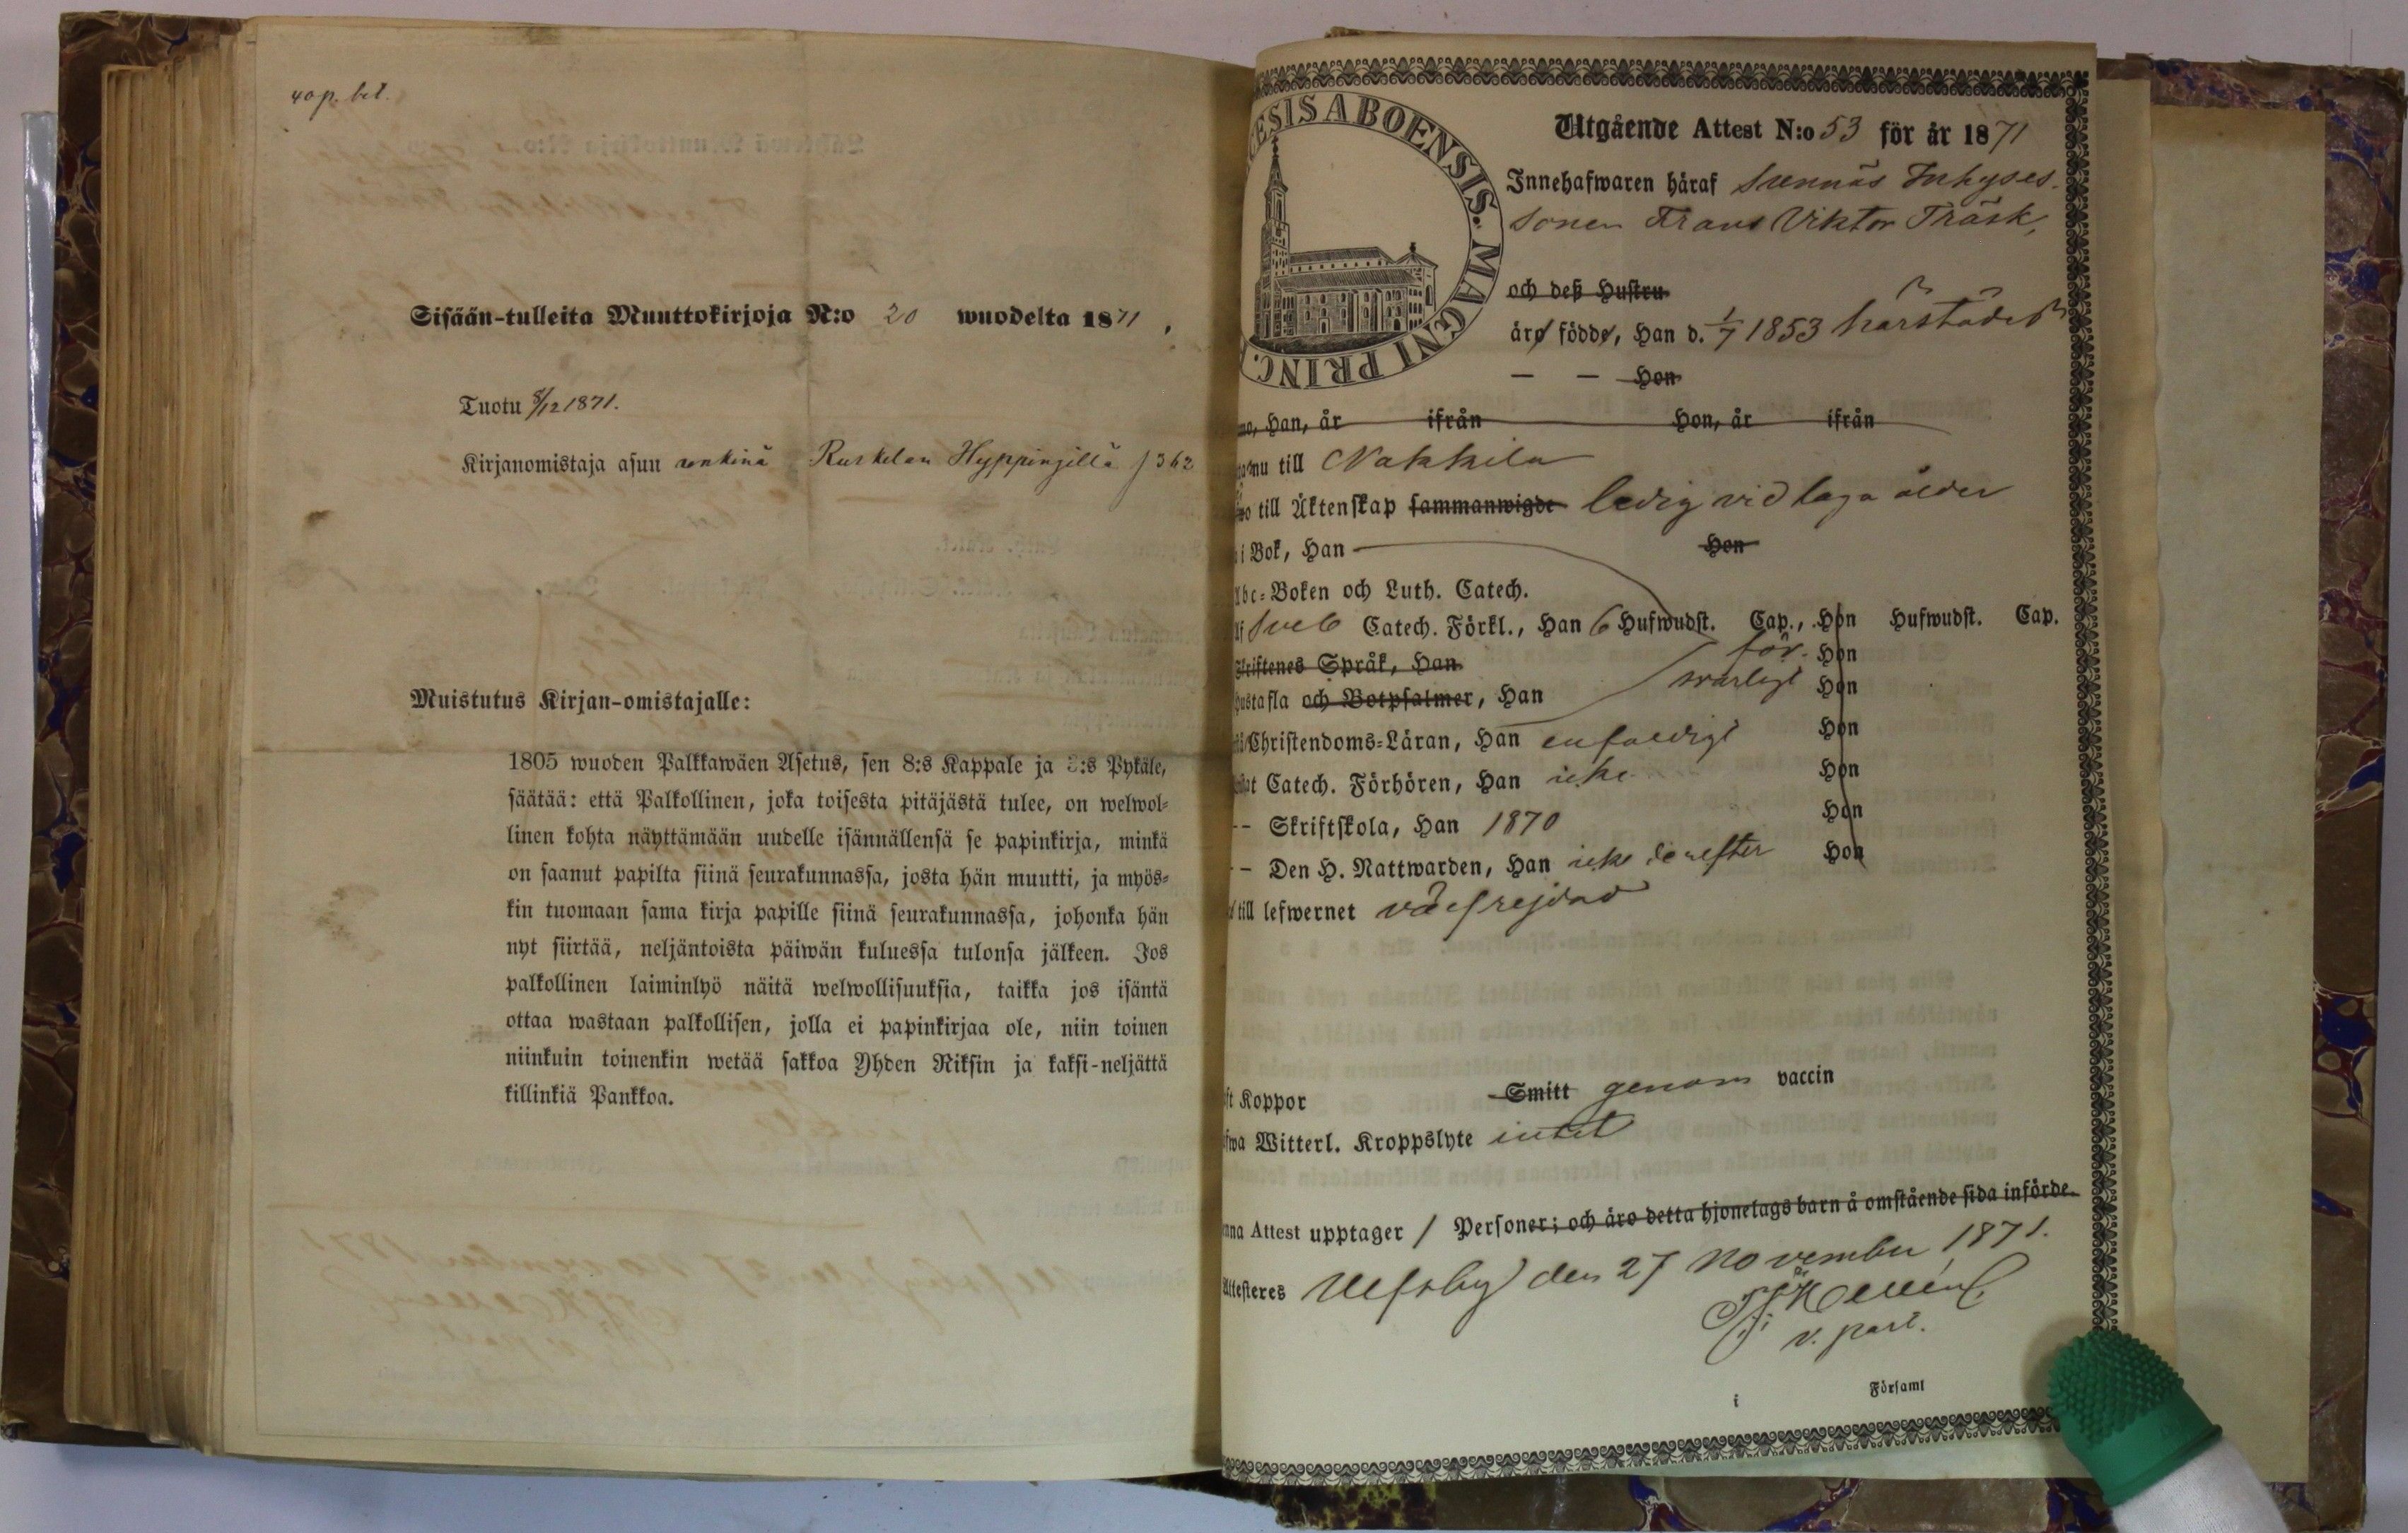 40 p. bet.
Sisään-tulleita Muuttokirjoja N:o 20 wuodelta 1871.
Tuotu 8/12 1871.
Kirjanomistaja asuu renkinä Ruskelan Hyppingillä f 362
Muistutus Kirjan-omistajalle:
1805 wuoden Palkkawäen Asetus, sen 8:s Kappale ja 3:s Pykäle,
säätää: että Palkollinen, joka toisesta pitäjästä tulee, on welwol-
linen kohta näyttämään uudelle isännällensä se papinkirja, minkä
on saanut papilta siinä seurakunnassa, josta hän muutti, ja myös-
kin tuomaan sama kirja papille siinä seurakunnassa, johonka hän
nyt siirtää, neljäntoista päiwän kuluessa tulonsa jälkeen. Jos
palkollinen laiminlyö näitä welwollisuuksia, taikka jos isäntä
ottaa wastaan palkollisen, jolla ei papinkirjaa ole, niin toinen
niinkuin toinenkin wetää sakkoa Yhden Riksin ja kaksi-neljättä
killinkiä Pankkoa.
ESIS ABOENSIS. MAGNI PRINC.
Utgående Attest N:o 53 för år 1871
Innehafwaren häraf Sunnäs Inhyses-
sonen Frans Viktor Träsk,
och deß Hustru
äro födde, Han d. 1/7 1853 härstädes
— — Hon
Han, år ifrån Hon, år ifrån
nu till Nakkila
till Äktenskap sammanwigde ledig vid laga ålder
i Bok, Han Hon
Abc-Boken och Luth. Catech.
Sveb Catech. Förkl., Han 6 Hufwudst. Cap., Hon Hufwudst. Cap.
Skriftenes Språk, Han för- Hon
Hustafla och Botpsalmer, Han svarligt Hon
Christendoms-Läran, Han enfaldigt Hon
Catech. Förhören, Han icke Hon
-- Skriftskola, Han 1870 Hon
-- Den H. Nattwarden, Han icke derefter Hon
till lefwernet välfrejdad
Koppor Smitt genom vaccin
Witterl. Kroppslyte intet
Attest upptager 1 Personer; och äro detta hjonelags barn å omstående sida införde.
Attesteres Ulfsby den 27 November 1871.
v. past.
i Församl